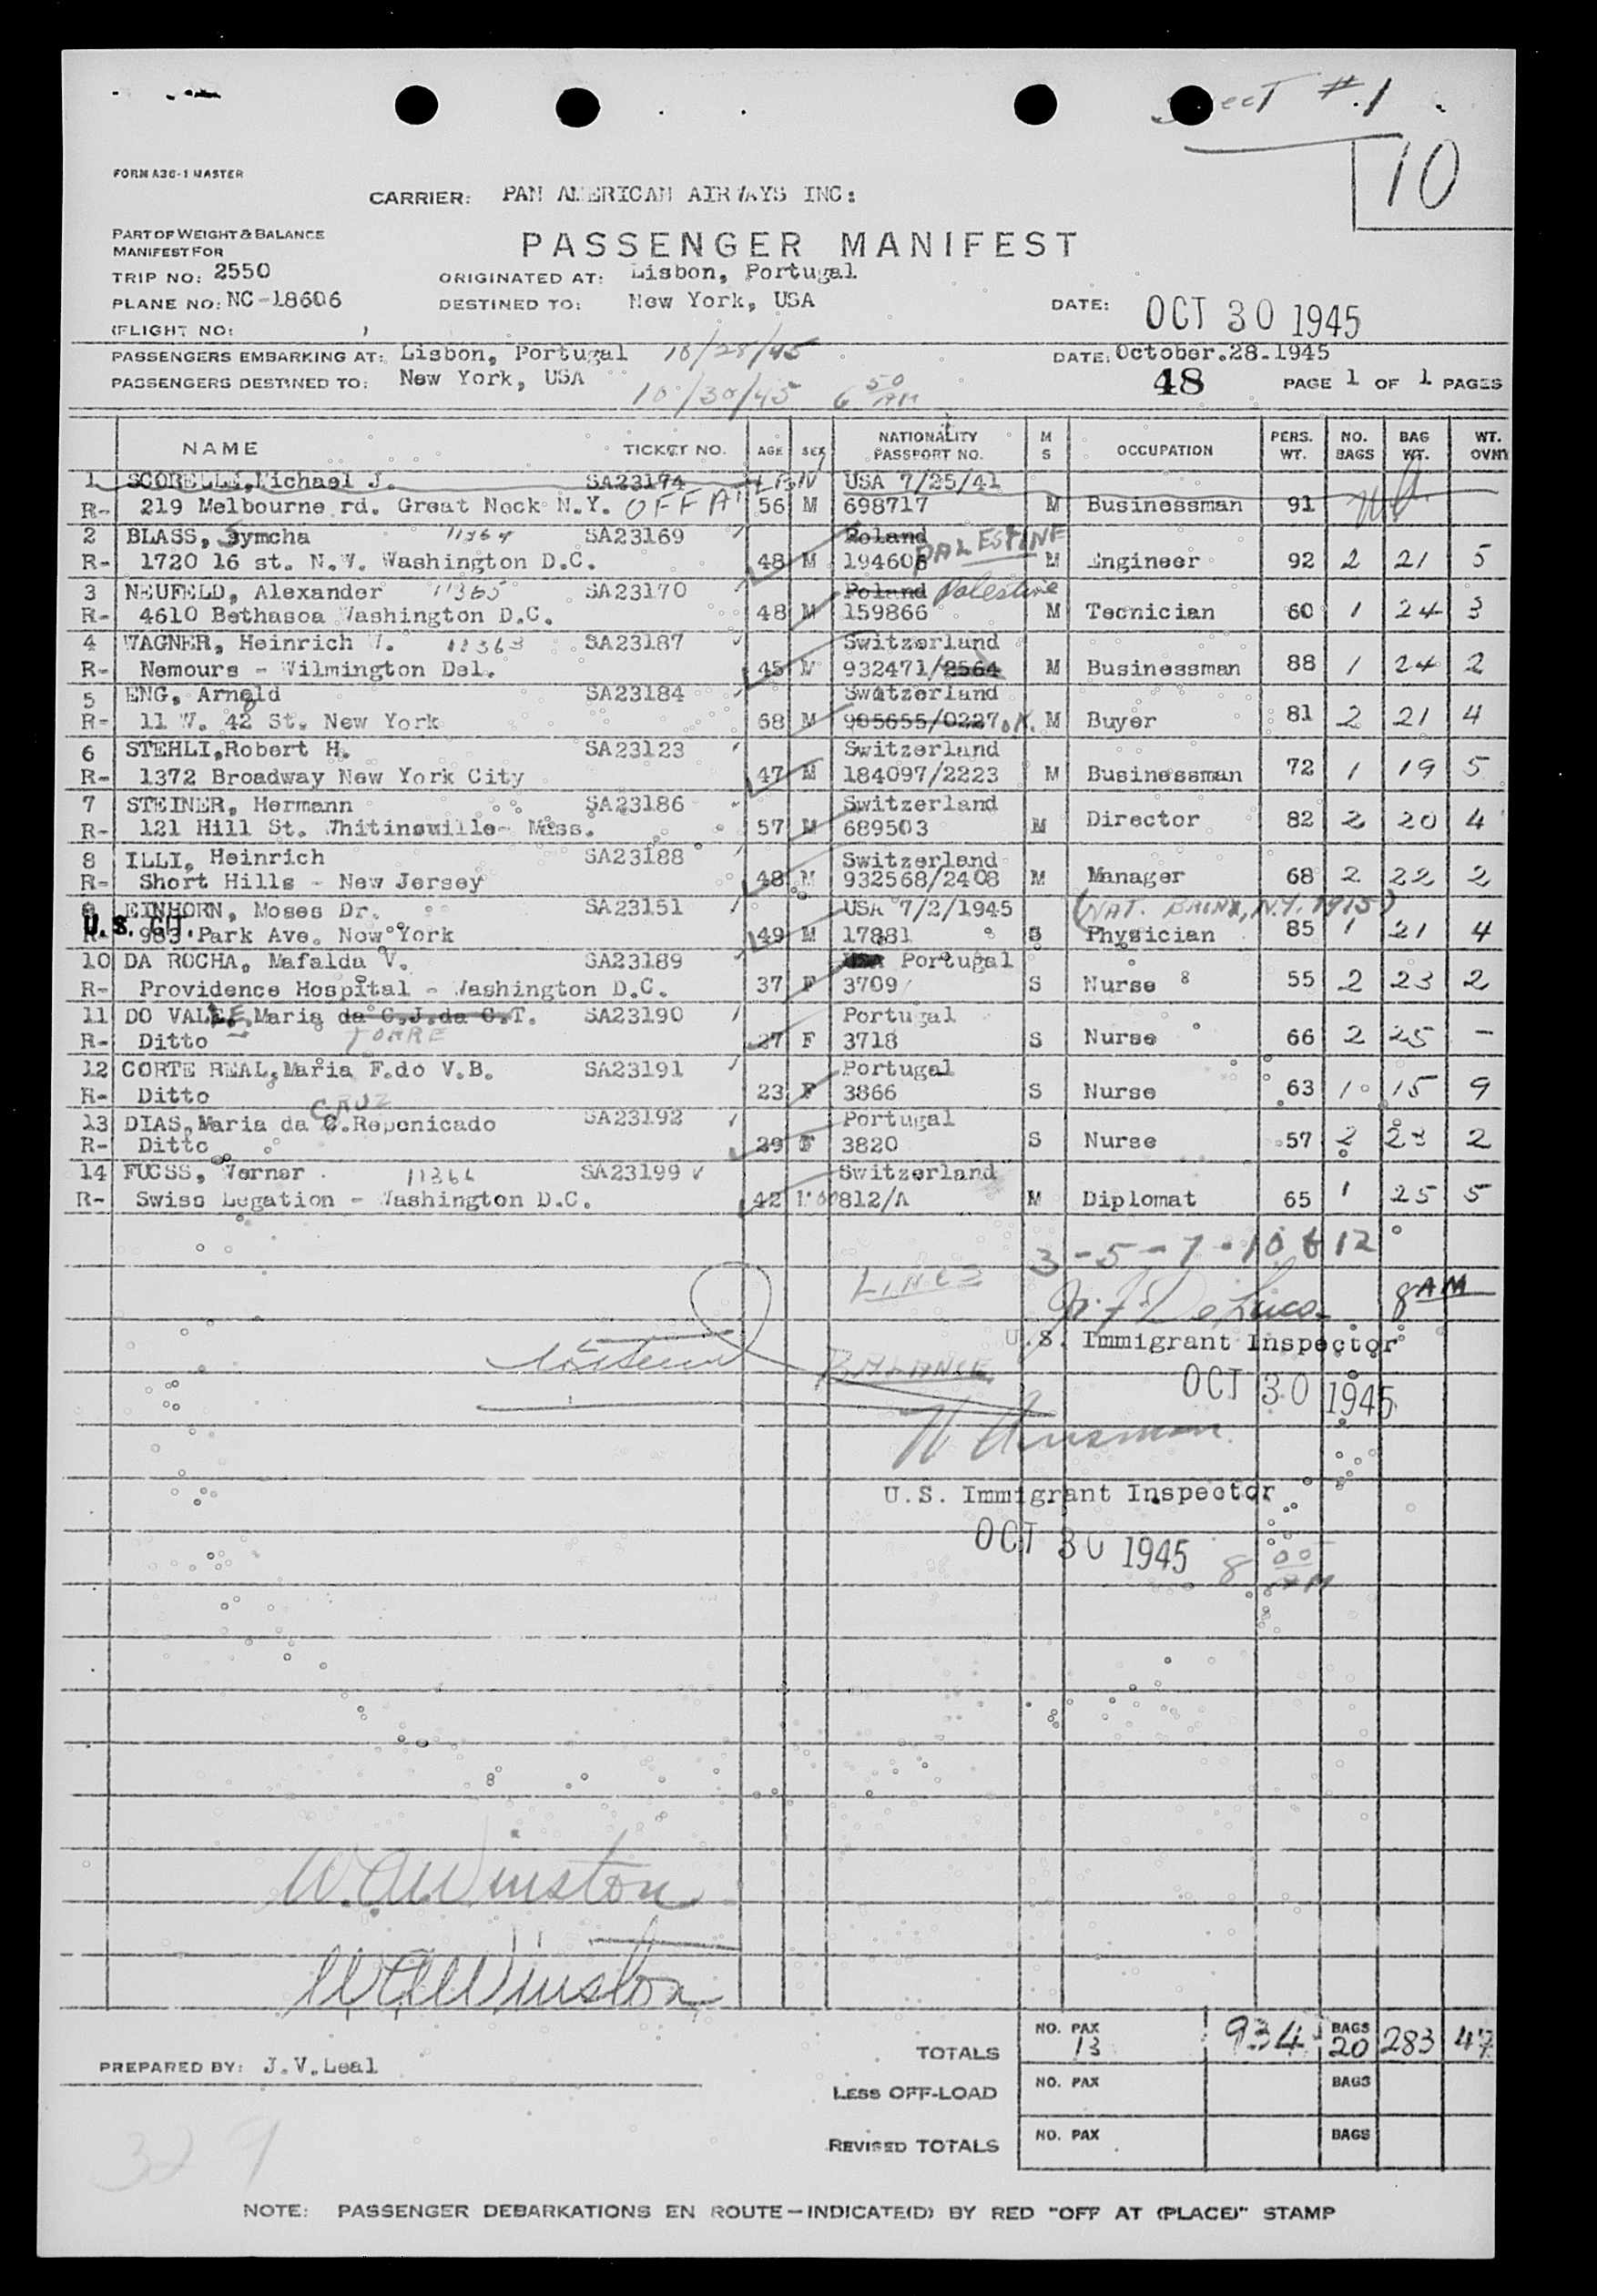 Sheet #1
10
FORM A36-1 MASTER
CARRIER: PAN AMERICAN AIRWAYS INC:
PART OF WEIGHT & BALANCE
MANIFEST FOR
PASSENGER MANIFEST
TRIP NO: 2550 ORIGINATED AT: Lisbon, Portugal
PLANE NO: NC-18606 DESTINED TO: New York, USA DATE: OCT 30 1945
(FLIGHT NO: )
PASSENGERS EMBARKING AT: Lisbon, Portugal 10/28/45 DATE: October.28.1945
PASSENGERS DESTINED TO: New York, USA 10/30/45 6 50 AM 48 PAGE 1 OF 1 PAGES
NAME TICKET NO. AGE SEX NATIONALITY PASSPORT NO. M S OCCUPATION PERS. WT. NO. BAGS BAG WT. WT. OVWT
1 SCORELLI, Michael J. SA23174 USA 7/25/41
R- 219 Melbourne rd. Great Neck N.Y. OFF AT LBN 56 M 698717 M Businessman 91
2 BLASS, Symcha 11364 SA23169 Poland PALESTINE
R- 1720 16 st. N.W. Washington D.C. 48 M 194606 M Engineer 92 2 21 5
3 NEUFELD, Alexander 11365 SA23170 Poland Palestine
R- 4610 Bethasoa Washington D.C. 48 M 159866 M Tecnician 60 1 24 3
4 WAGNER, Heinrich W. 11363 SA23187 Switzerland
R- Nemours - Wilmington Del. 45 M 932471/2564 M Businessman 88 1 24 2
5 ENG, Arnold SA23184 Switzerland
R- 11 W. 42 St. New York 68 M 905655/0227 OK. M Buyer 81 2 21 4
6 STEHLI, Robert H. SA23123 Switzerland
R- 1372 Broadway New York City 47 M 184097/2223 M Businessman 72 1 19 5
7 STEINER, Hermann SA23186 Switzerland
R- 121 Hill St. Whitinsville- Mass. 57 M 689503 M Director 82 2 20 4
8 ILLI, Heinrich SA23188 Switzerland
R- Short Hills - New Jersey 48 M 932568/2408 M Manager 68 2 22 2
9 EINHORN, Moses Dr. SA23151 USA 7/2/1945 (NAT. BRINX, N.Y. 1915)
U.S. CIT.
R- 983 Park Ave. New York 49 M 17881 S Physician 85 1 21 4
10 DA ROCHA, Mafalda V. SA23189 USA Portugal
R- Providence Hospital - Washington D.C. 37 F 3709 S Nurse 55 2 23 2
11 DO VALLE, Maria da C.J.da C.T. SA23190 Portugal
TORRE
R- Ditto 27 F 3718 S Nurse 66 2 25 -
12 CORTE REAL, Maria F.do V.B. SA23191 Portugal
R- Ditto 23 F 3866 S Nurse 63 1 15 9
CRUZ
13 DIAS, Maria da C.Reponicado SA23192 Portugal
R- Ditto 29 F 3820 S Nurse 57 2 23 2
14 FUCSS, Verner 11366 SA23199 Switzerland
R- Swiss Legation - Washington D.C. 42 M 812/A M Diplomat 65 1 25 5
LINES 3-5-7-10 & 12
8 AM
U.S. Immigrant Inspector
BALANCE OCT 30 1945
U.S. Immigrant Inspector
OCT 30 1945 8 00 AM
W.A. Winston
W.A. Winston
TOTALS NO. PAX 13 934 BAGS 20 283 47
PREPARED BY: J.V.Leal
LESS OFF-LOAD NO. PAX BAGS
REVISED TOTALS NO. PAX BAGS
329
NOTE: PASSENGER DEBARKATIONS EN ROUTE—INDICATE(D) BY RED "OFF AT (PLACE)" STAMP